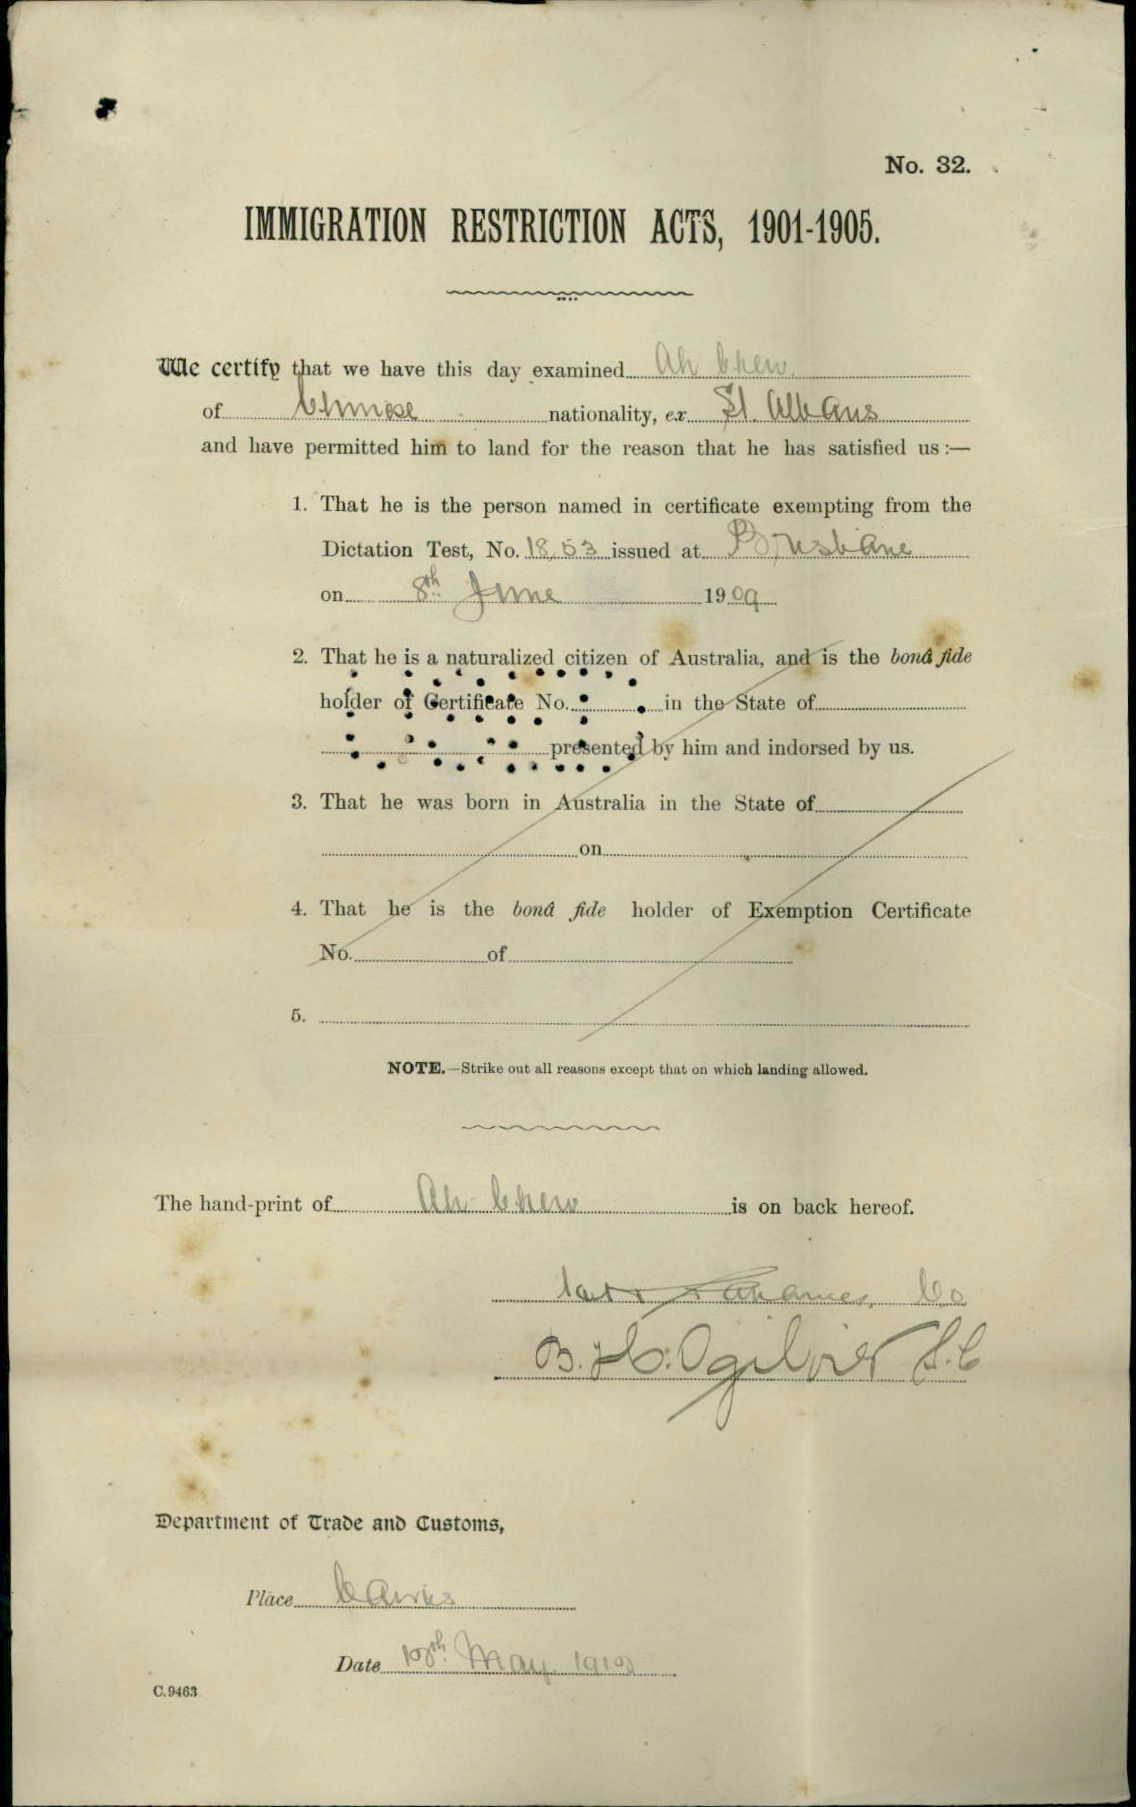 No. 32.
IMMIGRATION RESTRICTION ACTS, 1901-1905.
We certify that we have this day examined Ah Chew
of Chinese nationality, ex St. Albans
and have permitted him to land for the reason that he has satisfied us :—
1. That he is the person named in certificate exempting from the
Dictation Test, No. 18.53 issued at Brisbane
on 8th June 1909
2. That he is a naturalized citizen of Australia, and is the bonâ fide
holder of Certificate No. in the State of
presented by him and indorsed by us.
3. That he was born in Australia in the State of
on
4. That he is the bonâ fide holder of Exemption Certificate
No. of
5.
NOTE.—Strike out all reasons except that on which landing allowed.
The hand-print of Ah Chew is on back hereof.
B. H. Ogilvie
Department of Trade and Customs,
Place Cairns
Date May
C.9463